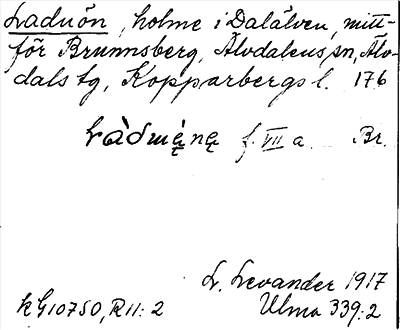 Laduön, holme i Dalälven, mitt-
för Brunnsberg, Älvdalens sn, Älv-
dals tg, Kopparbergs l. 176
f. VII a. Br.
L. Levander 1917
kG10750, R11: 2 Ulma 339:2